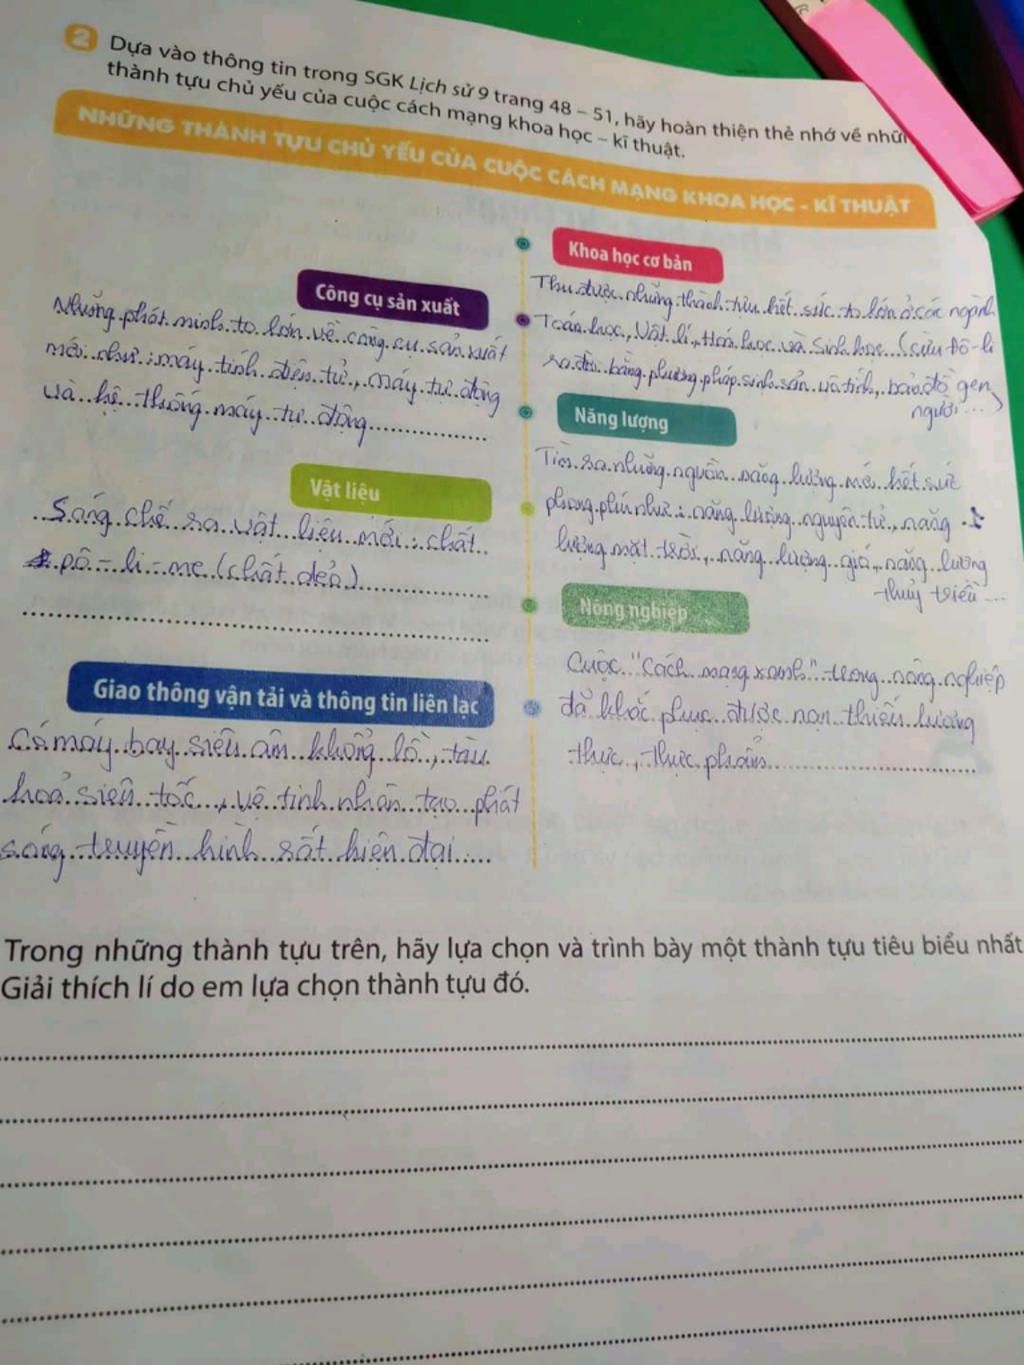 2 Dựa vào thông tin trong SGK Lịch sử 9 trang 48 – 51, hãy hoàn thiện thẻ nhớ về nhữn
thành tựu chủ yếu của cuộc cách mạng khoa học – kĩ thuật.
NHỮNG THÀNH TỰU CHỦ YẾU CỦA CUỘC CÁCH MẠNG KHOA HỌC - KĨ THUẬT
Khoa học cơ bản
Thu được những thành tựu hết sức to lớn ở các ngành
Toán học, Vật lí, Hoá học và Sinh học (cừu Đô-li
ra đời bằng phương pháp sinh sản vô tính, bản đồ gen
người...)
Công cụ sản xuất
Những phát minh to lớn về công cụ sản xuất
mới như: máy tính điện tử, máy tự động
và hệ thống máy tự động
Năng lượng
Tìm ra những nguồn năng lượng mới hết sức
phong phú như: năng lượng nguyên tử, năng
lượng mặt trời, năng lượng gió, năng lượng
thuỷ triều...
Vật liệu
Sáng chế ra vật liệu mới: chất
pô-li-me (chất dẻo)
Nông nghiệp
Cuộc "Cách mạng xanh" trong nông nghiệp
đã khắc phục được nạn thiếu lương
thực, thực phẩm
Giao thông vận tải và thông tin liên lạc
Có máy bay siêu âm khổng lồ, tàu
hoả siêu tốc, vệ tinh nhân tạo phát
sóng truyền hình rất hiện đại...
Trong những thành tựu trên, hãy lựa chọn và trình bày một thành tựu tiêu biểu nhất
Giải thích lí do em lựa chọn thành tựu đó.